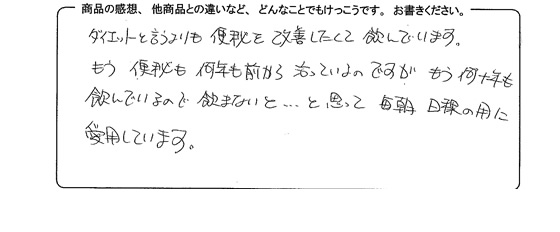 商品の感想、他商品との違いなど、どんなことでもけっこうです。お書きください。
ダイエットと言うよりも 便秘を 改善したくて 飲んでいます。
もう 便秘も 何年も前から 治っているのですが もう何十年も
飲んでいるので 飲まないと…と思って 毎朝 日課の用に
愛用しています。